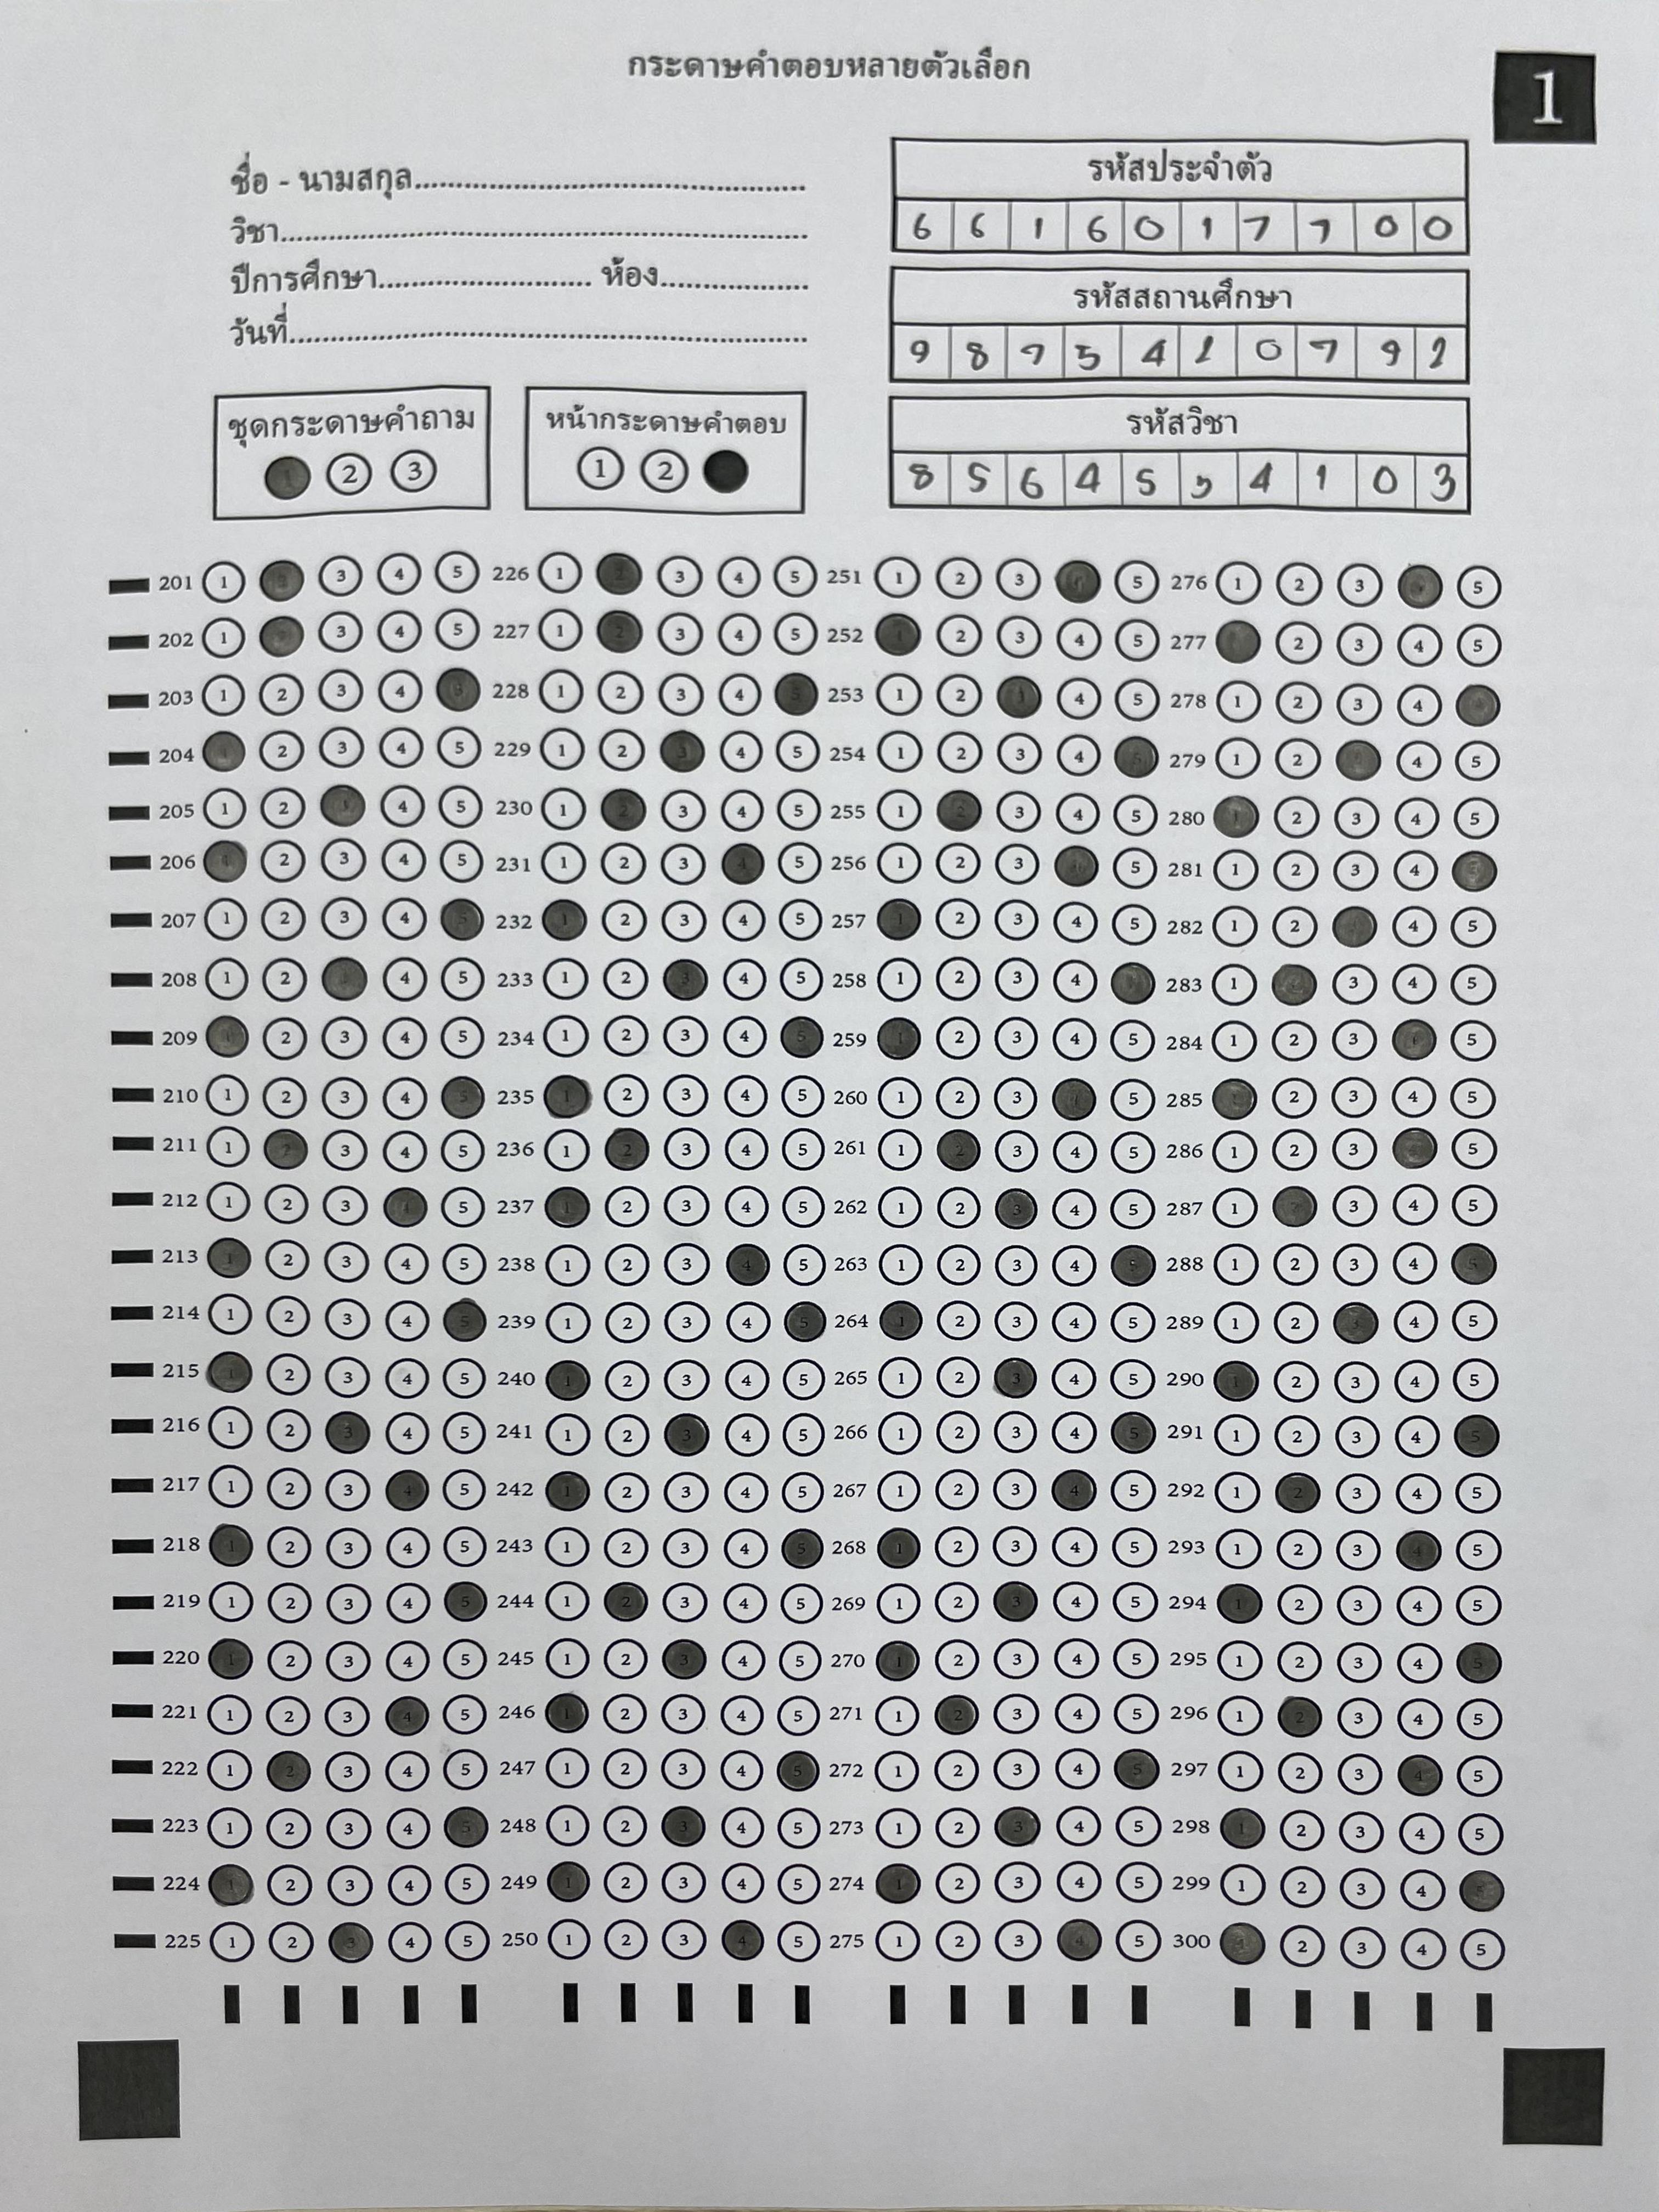 กระดาษคำตอบหลายตัวเลือก
1
ชื่อ - นามสกุล
วิชา
ปีการศึกษา ห้อง
วันที่
รหัสประจำตัว
6 6 1 6 0 1 7 7 0 0
รหัสสถานศึกษา
9 8 7 5 4 2 0 7 9 2
รหัสวิชา
8 5 6 4 5 5 4 1 0 3
ชุดกระดาษคำถาม
1 2 3
หน้ากระดาษคำตอบ
1 2
201 1 2 3 4 5 226 1 2 3 4 5 251 1 2 3 4 5 276 1 2 3 4 5
202 1 2 3 4 5 227 1 2 3 4 5 252 1 2 3 4 5 277 1 2 3 4 5
203 1 2 3 4 5 228 1 2 3 4 5 253 1 2 3 4 5 278 1 2 3 4 5
204 1 2 3 4 5 229 1 2 3 4 5 254 1 2 3 4 5 279 1 2 3 4 5
205 1 2 3 4 5 230 1 2 3 4 5 255 1 2 3 4 5 280 1 2 3 4 5
206 1 2 3 4 5 231 1 2 3 4 5 256 1 2 3 4 5 281 1 2 3 4 5
207 1 2 3 4 5 232 1 2 3 4 5 257 1 2 3 4 5 282 1 2 3 4 5
208 1 2 3 4 5 233 1 2 3 4 5 258 1 2 3 4 5 283 1 2 3 4 5
209 1 2 3 4 5 234 1 2 3 4 5 259 1 2 3 4 5 284 1 2 3 4 5
210 1 2 3 4 5 235 1 2 3 4 5 260 1 2 3 4 5 285 1 2 3 4 5
211 1 2 3 4 5 236 1 2 3 4 5 261 1 2 3 4 5 286 1 2 3 4 5
212 1 2 3 4 5 237 1 2 3 4 5 262 1 2 3 4 5 287 1 2 3 4 5
213 1 2 3 4 5 238 1 2 3 4 5 263 1 2 3 4 5 288 1 2 3 4 5
214 1 2 3 4 5 239 1 2 3 4 5 264 1 2 3 4 5 289 1 2 3 4 5
215 1 2 3 4 5 240 1 2 3 4 5 265 1 2 3 4 5 290 1 2 3 4 5
216 1 2 3 4 5 241 1 2 3 4 5 266 1 2 3 4 5 291 1 2 3 4 5
217 1 2 3 4 5 242 1 2 3 4 5 267 1 2 3 4 5 292 1 2 3 4 5
218 1 2 3 4 5 243 1 2 3 4 5 268 1 2 3 4 5 293 1 2 3 4 5
219 1 2 3 4 5 244 1 2 3 4 5 269 1 2 3 4 5 294 1 2 3 4 5
220 1 2 3 4 5 245 1 2 3 4 5 270 1 2 3 4 5 295 1 2 3 4 5
221 1 2 3 4 5 246 1 2 3 4 5 271 1 2 3 4 5 296 1 2 3 4 5
222 1 2 3 4 5 247 1 2 3 4 5 272 1 2 3 4 5 297 1 2 3 4 5
223 1 2 3 4 5 248 1 2 3 4 5 273 1 2 3 4 5 298 1 2 3 4 5
224 1 2 3 4 5 249 1 2 3 4 5 274 1 2 3 4 5 299 1 2 3 4 5
225 1 2 3 4 5 250 1 2 3 4 5 275 1 2 3 4 5 300 1 2 3 4 5